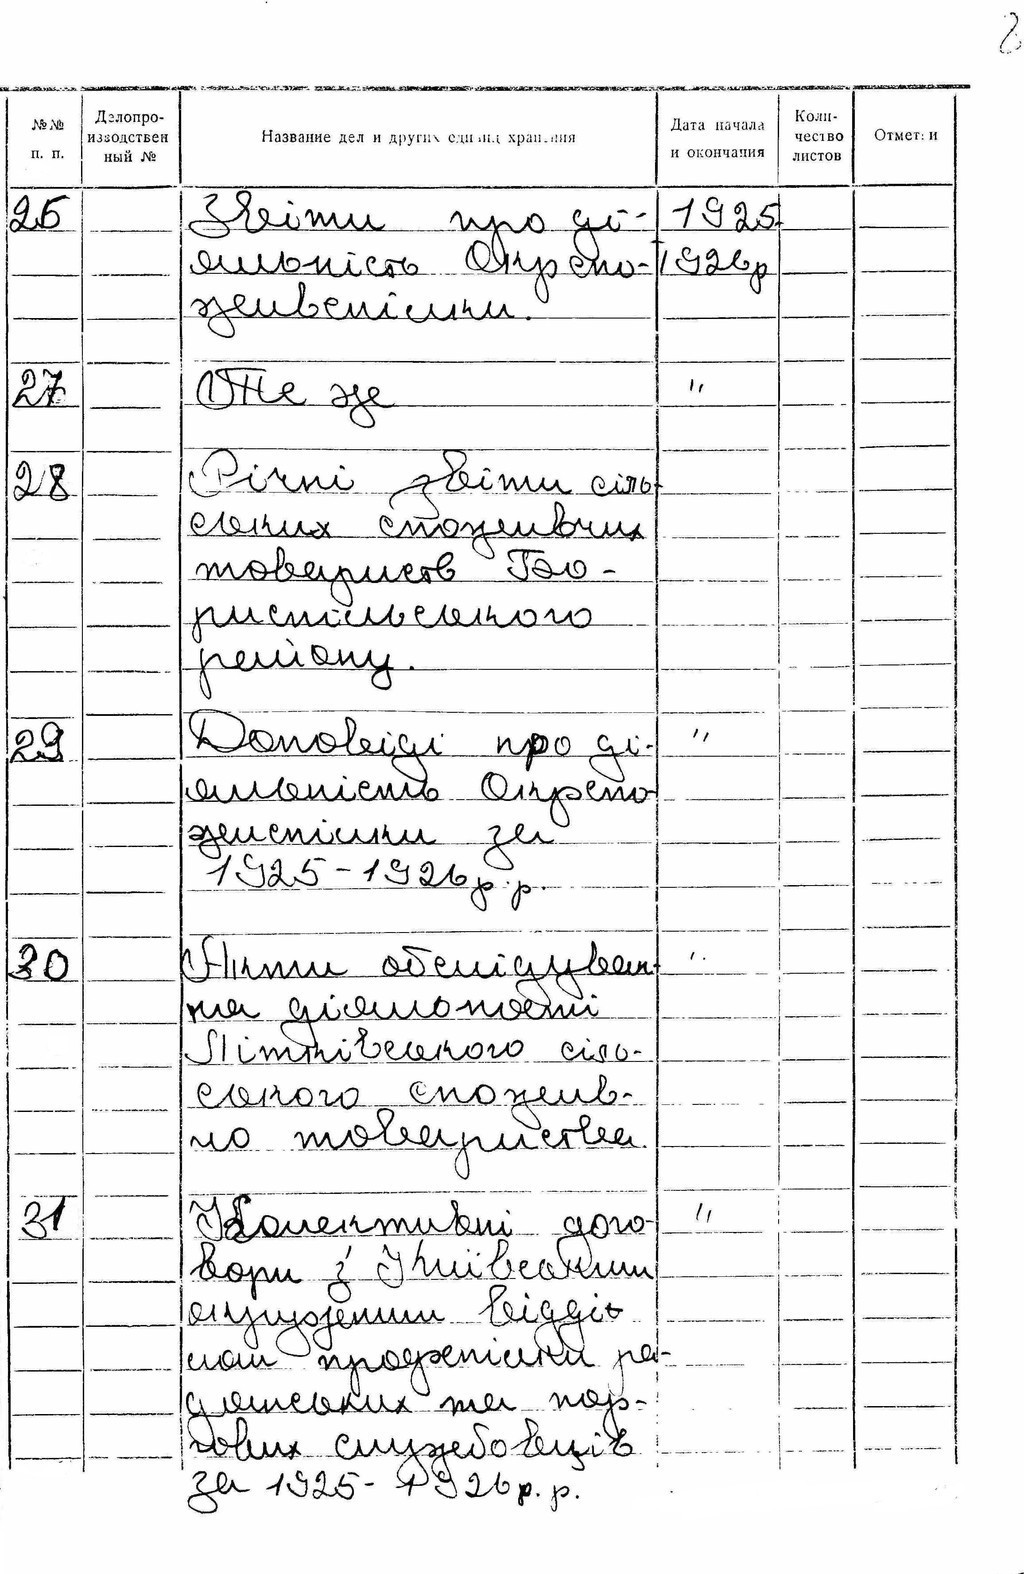 2
№№
п. п.
Делопро-
изводствен
ный №
Название дел и других единиц хранения
Дата начала
и окончания
Коли-
чество
листов
Отметки
26 Звіти про ді- 1925
яльність Окрспо- 1926р
живспілки.
27 Те же "
28 Річні звіти сіль
ських споживчих
товариств Бо-
риспільського
району.
29 Доповіді про ді- "
яльність Окрспо
жиспілки за
1925-1926р.р.
30 Акти обслідуван "
ня діяльності
Літківського сіль-
ського спожив-
чо товариства
31 Колективні дого- "
вори з Київським
окружним відді
лом профспілки ра-
дянських та тор-
гових службовців
за 1925-1926р.р.